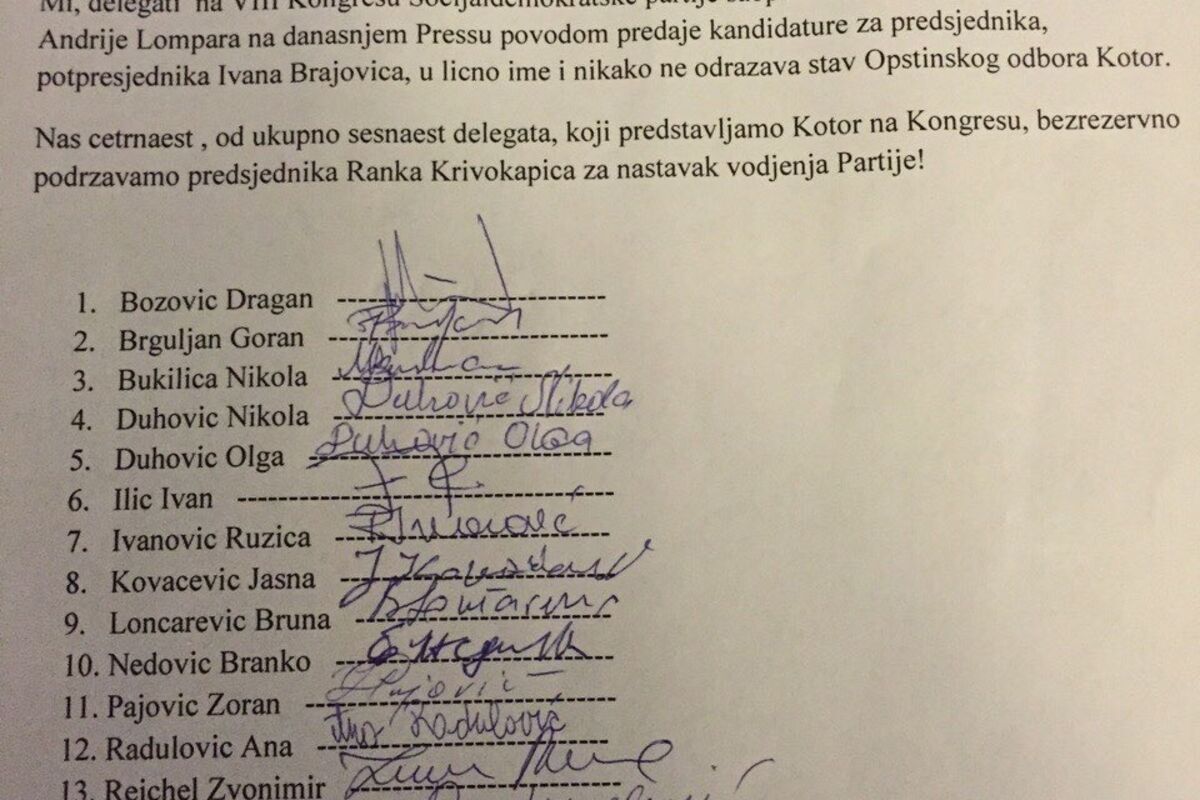 Mi, delegati na VIII Kongresu Socijaldemokratske partije
Andrije Lompara na danasnjem Pressu povodom predaje kandidature za predsjednika,
potpresjednika Ivana Brajovica, u licno ime i nikako ne odrazava stav Opstinskog odbora Kotor.
Nas cetrnaest , od ukupno sesnaest delegata, koji predstavljamo Kotor na Kongresu, bezrezervno
podrzavamo predsjednika Ranka Krivokapica za nastavak vodjenja Partije!
1. Bozovic Dragan ----------------------------
2. Brguljan Goran ----------------------------
3. Bukilica Nikola ----------------------------
4. Duhovic Nikola ---------------------------- Duhović Nikola
5. Duhovic Olga ------------------------------ Duhović Olga
6. Ilic Ivan --------------------------------------
7. Ivanovic Ruzica ---------------------------
8. Kovacevic Jasna ---------------------------
9. Loncarevic Bruna --------------------------
10. Nedovic Branko ---------------------------
11. Pajovic Zoran ------------------------------ Pajović
12. Radulovic Ana ----------------------------- Ana Radulović
13. Rejchel Zvonimir --------------------------